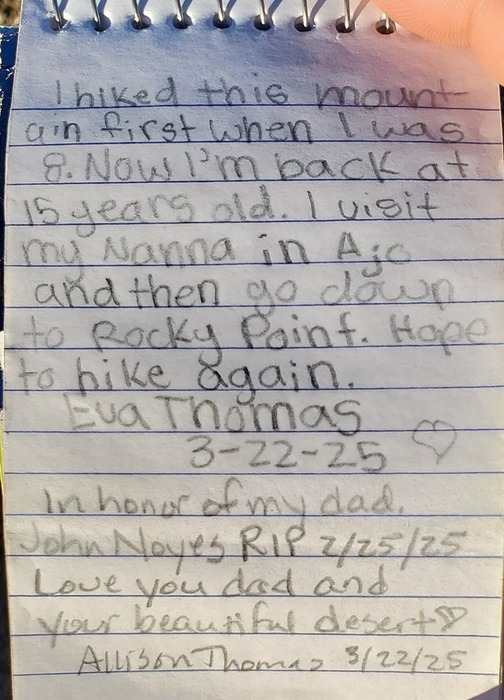 I hiked this mount
ain first when I was
8. Now I'm back at
15 years old. I visit
my Nanna in Ajo
and then go down
to Rocky Point. Hope
to hike again.
Eva Thomas
3-22-25 ♡
In honor of my dad.
John Noyes RIP 2/25/25
Love you dad and
your beautiful desert ♡
Allison Thomas 3/22/25